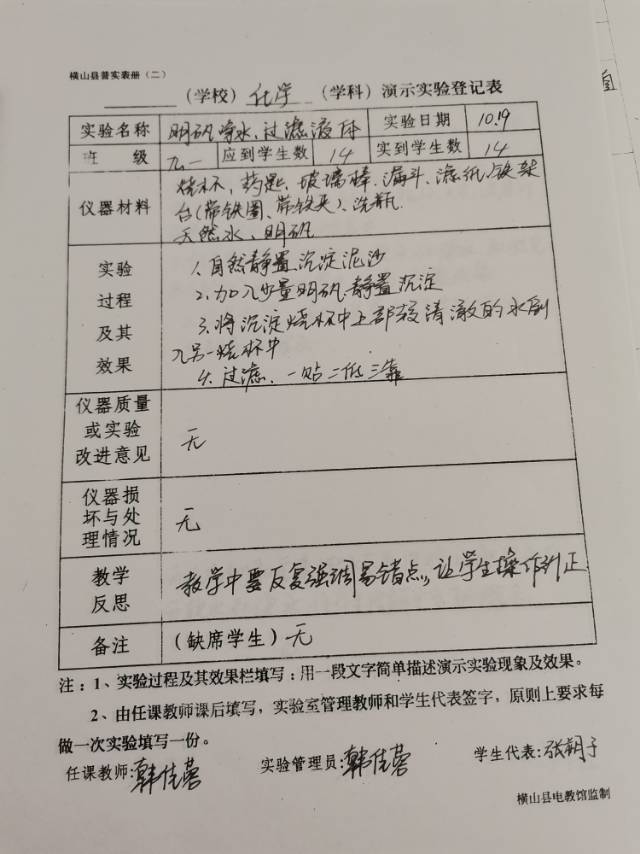 横山县普实表册（二）
（学校）化学（学科）演示实验登记表
实验名称 明矾净水、过滤液体 实验日期 10.19
班级 九一 应到学生数 14 实到学生数 14
仪器材料 烧杯、药匙、玻璃棒、漏斗、滤纸、铁架
台(带铁圈、带铁夹)、洗瓶.
天然水、明矾
实验过程及其效果
1.自然静置沉淀泥沙
2.加入少量明矾静置沉淀
3.将沉淀烧杯中上部较清澈的水倒
入另一烧杯中
4.过滤、一贴二低三靠
仪器质量或实验改进意见 无
仪器损坏与处理情况 无
教学反思 教学中要反复强调易错点，让学生操作纠正
备注 （缺席学生）无
注：1、实验过程及其效果栏填写：用一段文字简单描述演示实验现象及效果。
2、由任课教师课后填写，实验室管理教师和学生代表签字，原则上要求每
做一次实验填写一份。
任课教师:韩佳蓉 实验管理员:韩佳蓉 学生代表:张朔子
横山县电教馆监制